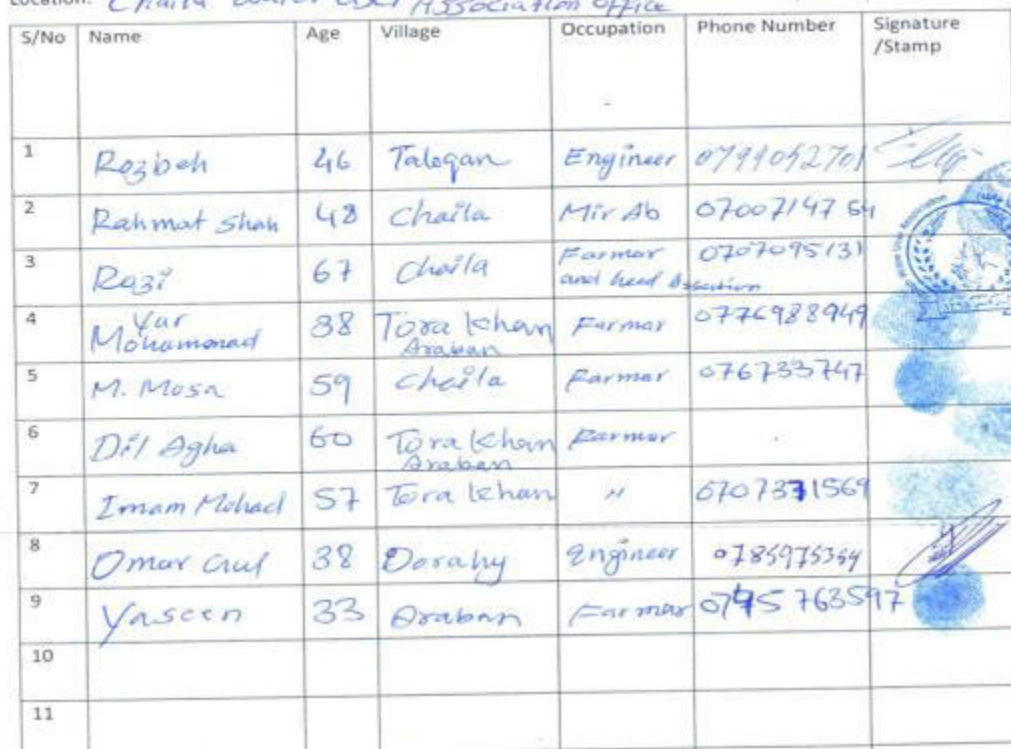 Location: Chaila Water User Association office
S/No Name Age Village Occupation Phone Number Signature /Stamp
1 Rozbeh 46 Taleqan Engineer 0799052701
2 Rahmat Shah 48 Chaila Mir Ab 0700714764
3 Rozi 67 Chaila Farmar and head 0707095131
4 Yar Mohammad 38 Tora Khan Araban Farmar 0776988949
5 M. Mosa 59 Chaila Farmar 076733747
6 Dil Agha 60 Tora Khan Araban Farmar
7 Imam Mohad 57 Tora Khan " 0707371569
8 Omar Gul 38 Dorahy Engineer 0785975354
9 Yaseen 33 Araban Farmar 763597
10
11